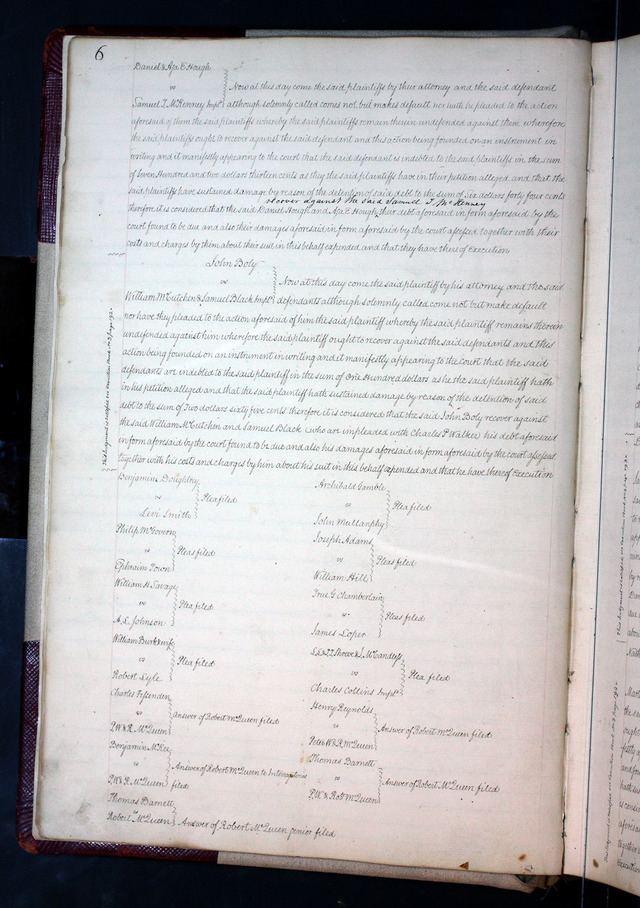 6
Daniel & Asa E Hough
vs
Samuel T. McKenney Impl.d
Now at this day come the said plaintiffs by their attorney and the said defendant
although solemnly called comes not but makes default nor with he pleaded to the action
aforesaid of them the said plaintiffs whereby the said plaintiffs remain therein undefended against them wherefore
the said plaintiffs ought to recover against the said defendant and this action being founded on an instrument in
writing and it manifestly appearing to the court that the said defendant is indebted to the said plaintiffs in the sum
of Seven Hundred and two dollars thirteen cents as they the said plaintiffs have in their petition alleged and that the
said plaintiffs have sustained damage by reason of the detention of said debt to the sum of Six dollars forty four cents
recover against the said Samuel T. McKenney
therefore it is considered that the said Daniel Hough and Asa E Hough their debt aforesaid in form aforesaid by the
court found to be due and also their damages aforesaid in form aforesaid by the court assessed together with their
costs and charges by them about their suit in this behalf expended and that they have thereof Execution
John Boly
vs
William McCutchen & Samuel Black Impl.d
Now at this day come the said plaintiff by his attorney and the said
defendants although solemnly called come not but make default
nor have they pleaded to the action aforesaid of him the said plaintiff whereby the said plaintiff remains therein
undefended against him wherefore the said plaintiff ought to recover against the said defendants and this
action being founded on an instrument in writing and it manifestly appearing to the court that the said
defendants are indebted to the said plaintiff in the sum of One Hundred dollars as he the said plaintiff hath
in his petition alleged and that the said plaintiff hath sustained damage by reason of the detention of said
debt to the sum of Two dollars sixty five cents therefore it is considered that the said John Boly recover against
the said William McCutchen and Samuel Black (who are impleaded with Charles P Walker) his debt aforesaid
in form aforesaid by the court found to be due and also his damages aforesaid in form aforesaid by the court assessed
together with his costs and charges by him about his suit in this behalf expended and that he have thereof Execution
Benjamin Doughtry
vs
Levi Smith
Plea filed
Philip McGovern
vs
Ephraim Town
Pleas filed
William H. Savage
vs
A. L. Johnson
Plea filed
William Burk
vs
Robert Lyle
Plea filed
Charles Fessenden
vs
P.W & R. McQueen
Answer of Robert McQueen filed
Benjamin McKee
vs
P.W & R McQueen
Answer of Robert McQueen to Interrogatories
filed
Thomas Barnett
vs
Robert McQueen
Answer of Robert McQueen senior filed
Archibald Gamble
vs
John Mullanphy
Plea filed
Joseph Adams
vs
William Hill
Pleas filed
True G. Chamberlain
vs
James Loper
Pleas filed
vs
Charles Collins Impl.d
Plea filed
Henry Reynolds
vs
Peter W & R McQueen
Answer of Robert McQueen filed
Thomas Barnett
vs
P.W & Robt McQueen
Answer of Robert McQueen filed